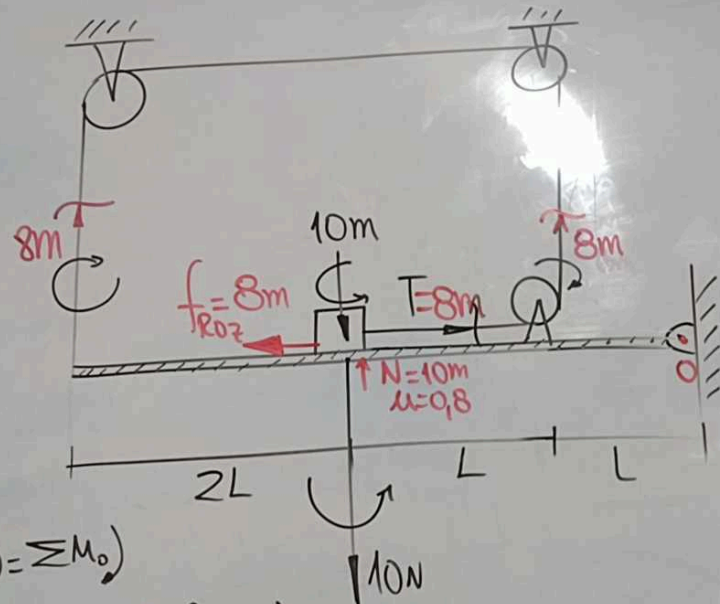 10m
8m
8m
f_ROZ = 8m
T=8m
N=10m
μ=0,8
O
2L
L
L
=ΣM₀)
10N